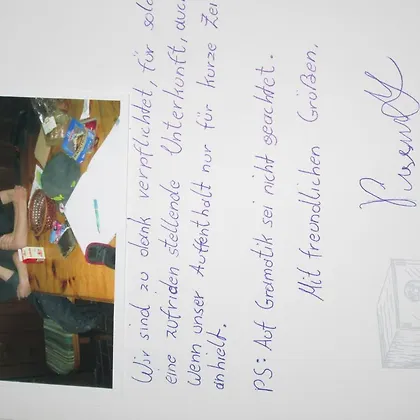 Wir sind zu dank verpflichtet, für
eine zufriden stellende Unterkunft,
Wenn unser Auffenthalt nur für kurze
anhielt.
PS: Auf Gramatik sei nicht geachtet.
Mit freundlichen Grüßen,